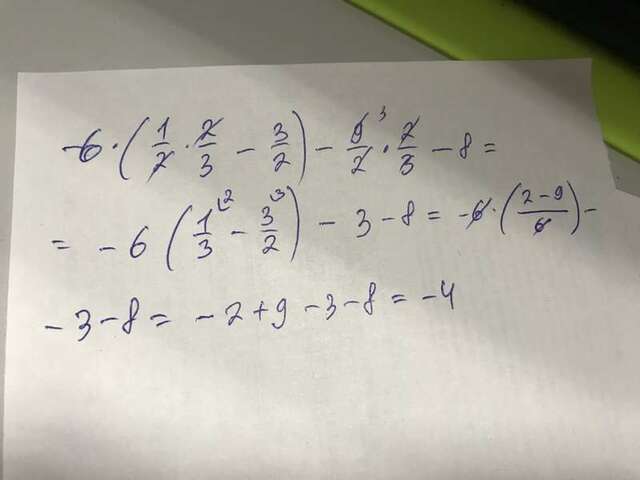 -6·(1/2·2/3 - 3/2) - 9/2³·2/3 - 8 =
= -6(1/3⁽² - 3/2⁽³) - 3 - 8 = -6·((2-9)/6) -
-3-8 = -2+9-3-8 = -4